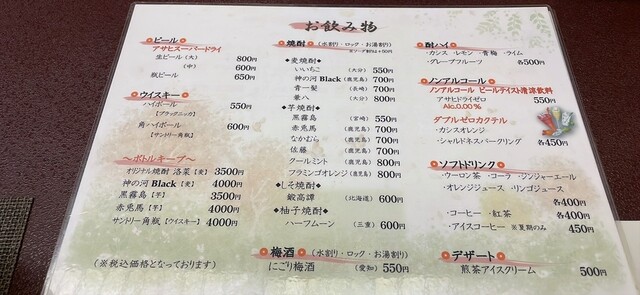 お飲み物
ビール
アサヒスーパードライ
生ビール(大) 800円
(中) 600円
瓶ビール 650円
ウイスキー
ハイボール 550円
【ブラックニッカ】
角ハイボール 600円
【サントリー角瓶】
～ボトルキープ～
オリジナル焼酎 洛菜【麦】 3500円
神の河 Black【麦】 4000円
黒霧島【芋】 3500円
赤兎馬【芋】 4000円
サントリー角瓶【ウイスキー】 4000円
(※税込価格となっております)
焼酎 (水割り・ロック・お湯割り)
※ソーダ割は+50円
◆麦焼酎◆
いいちこ (大分) 550円
神の河 Black (鹿児島) 700円
青一髪 (長崎) 700円
兼八 (大分) 800円
◆芋焼酎◆
黒霧島 (宮崎) 550円
赤兎馬 (鹿児島) 700円
なかむら (鹿児島) 700円
佐藤 (鹿児島) 700円
クールミント (鹿児島) 800円
フラミンゴオレンジ (鹿児島) 800円
◆しそ焼酎◆
鍛高譚 (北海道) 600円
◆柚子焼酎◆
ハーフムーン (三重) 600円
梅酒 (水割り・ロック・お湯割り)
にごり梅酒 (愛知) 550円
酎ハイ
・カシス ・レモン ・青梅 ・ライム
・グレープフルーツ 各500円
ノンアルコール
ノンアルコール ビールテイスト清涼飲料
アサヒドライゼロ 550円
Alc.0.00%
ダブルゼロカクテル
・カシスオレンジ
・シャルドネスパークリング
各450円
ソフトドリンク
・ウーロン茶 ・コーラ ・ジンジャーエール
・オレンジジュース ・リンゴジュース
各400円
・コーヒー ・紅茶 各400円
・アイスコーヒー ※夏期のみ 450円
デザート
煎茶アイスクリーム 500円